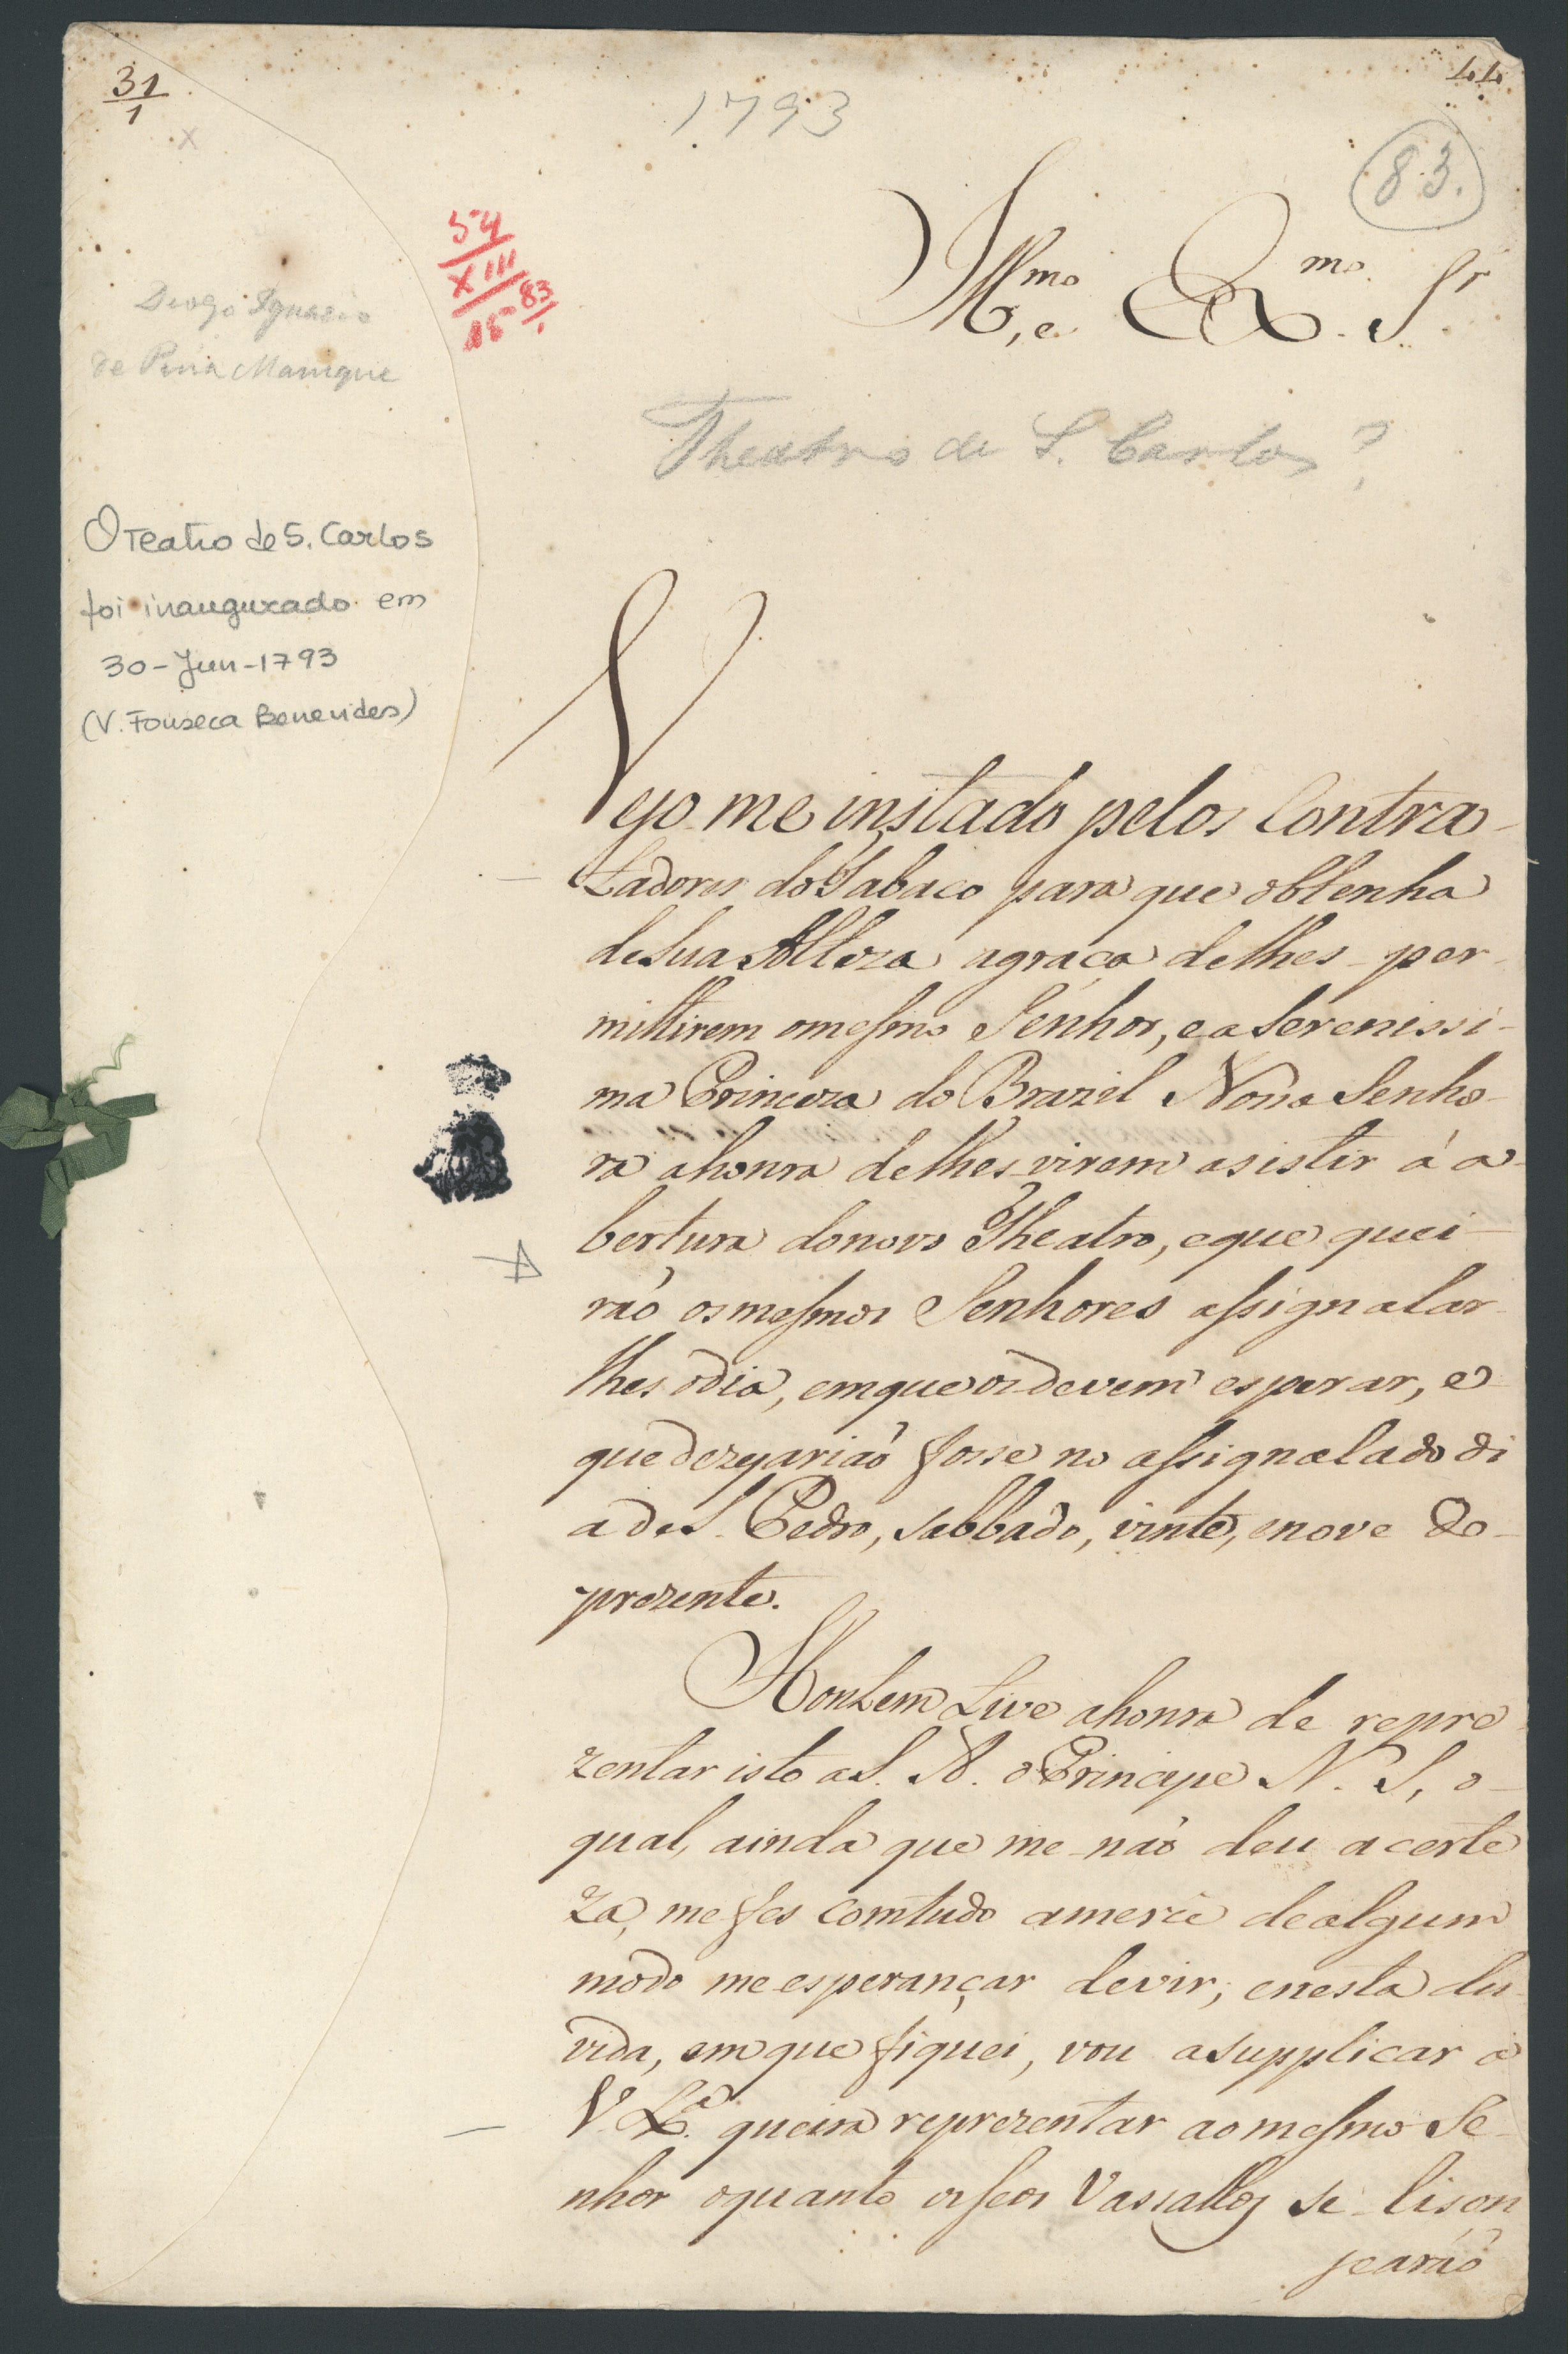 31
1
x
1793
44
83.
54
XIII
15 83
1
Diogo Ignacio
de Pina Manique
Ill.mo, e Ex.mo Sr
Theatro de S. Carlos?
O Teatro de S. Carlos
foi inaugurado em
30-Jun-1793
(V. Fonseca Benevides)
Vejo me instado pelos Contra-
tadores do Tabaco para que obtenha
de Sua Alteza a graça de lhes per-
mittirem o mesmo Senhor, e a Serenissi-
ma Princeza do Brazil Nossa Senho-
ra a honra de lhes virem asistir á a-
bertura do novo Theatro, e que quei-
rão os mesmos Senhores assignalar-
lhes o dia, em que os devem esperar, e
que dezejarião fosse no assignalado di
a de S. Pedro, sabbado, vinte, e nove do
prezente.
Hontem tive a honra de repre
zentar isto a S. A. o Principe N. S, o
qual, ainda que me não deu a certe
za, me fes comtudo a mercê de algum
modo me esperançar de vir; e nesta du
vida, em que fiquei, vou a supplicar a
V. Ex.a queira reprezentar ao mesmo Se
nhor o quanto os seos Vassallos se lison
jearáõ